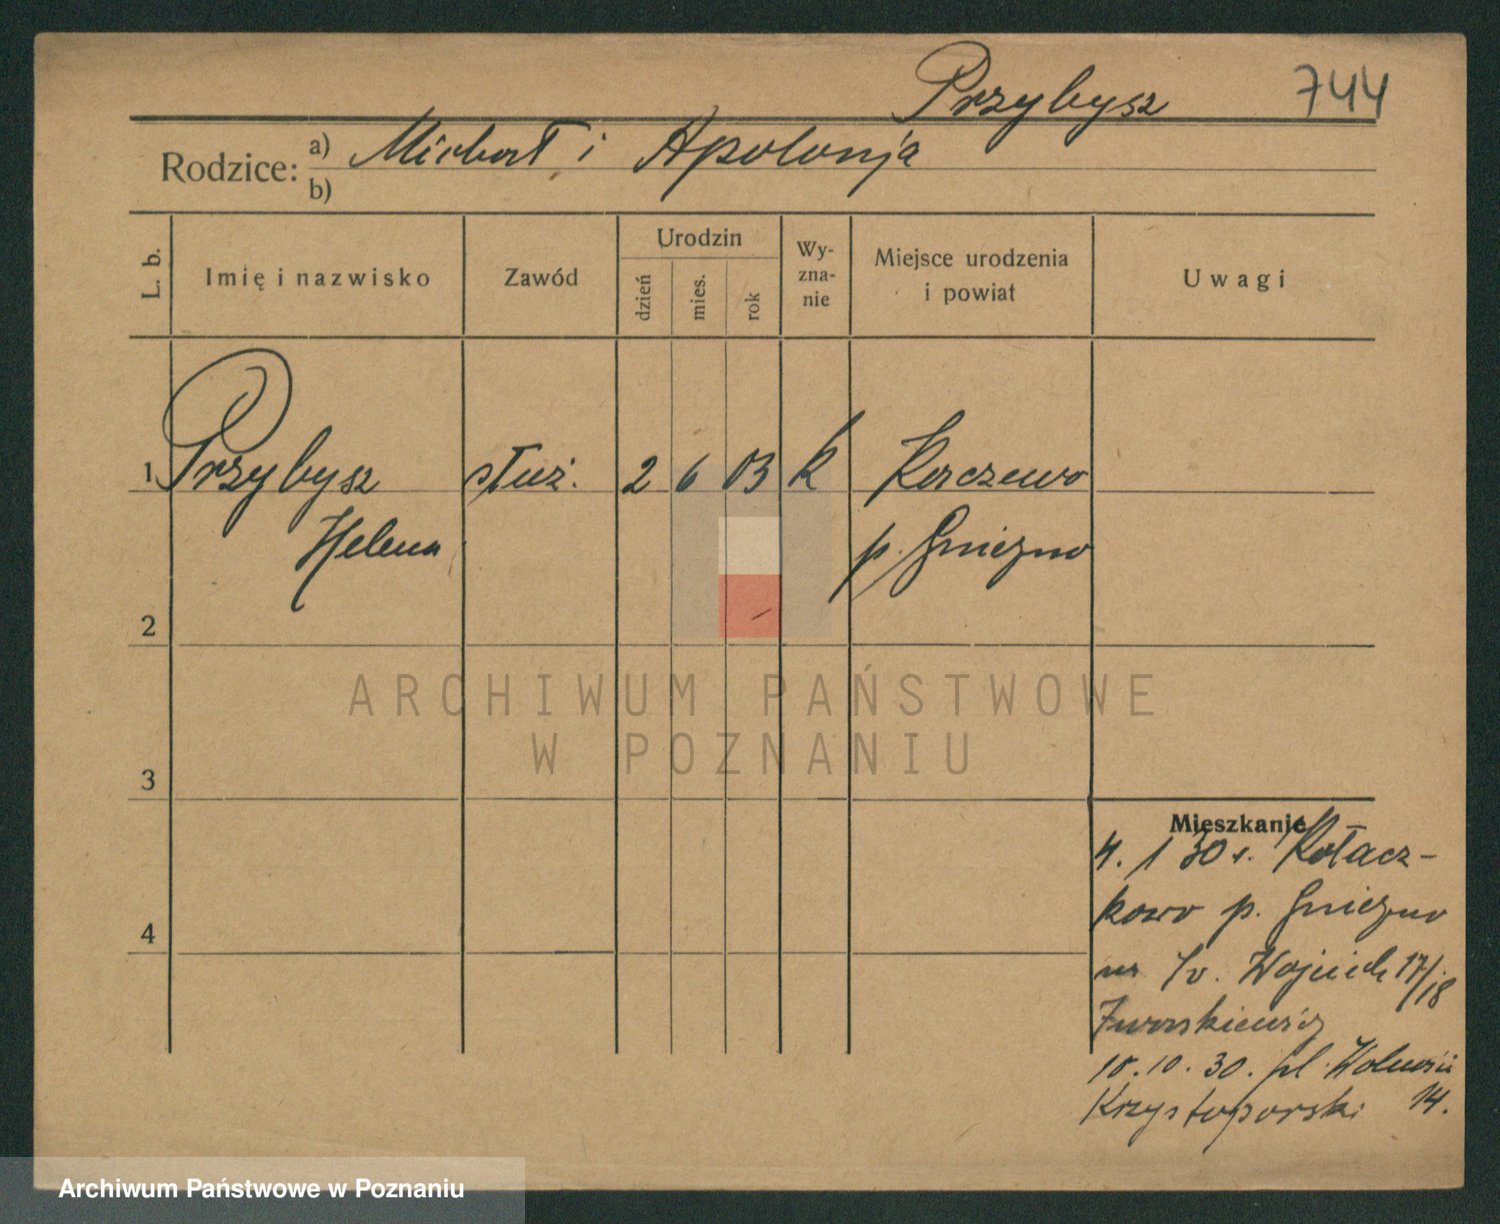 Przybysz 744
Rodzice: a) Michał i Apolonja
b)
L. b. Imię i nazwisko Zawód Urodzin dzień mies. rok Wy-zna-nie Miejsce urodzenia i powiat Uwagi
1 Przybysz służ. 2 6 03 k
Helena p. Gniezno
2
ARCHIWUM PAŃSTWOWE
W POZNANIU
3
Mieszkanie
4. 1 30 r. Kołacz-
kowo p. Gniezno
4
na św. Wojciech 17/18
18.10.30. pl. Wolności
Krzystoporski 14.
Archiwum Państwowe w Poznaniu